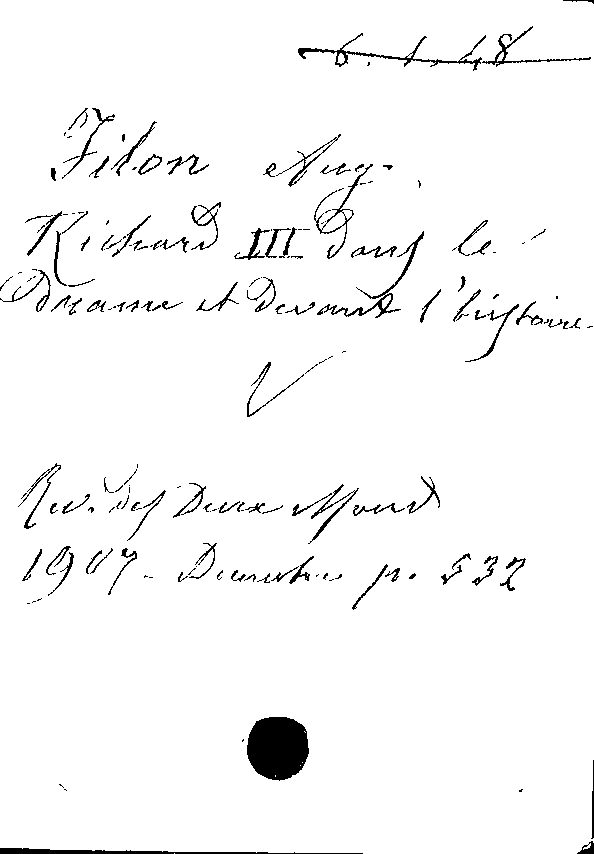 6.1.48
Filon Aug.
Richard III dans le
Drame et devant l'histoire
Rev. des Deux Mond
1907 - Decembre p. 532